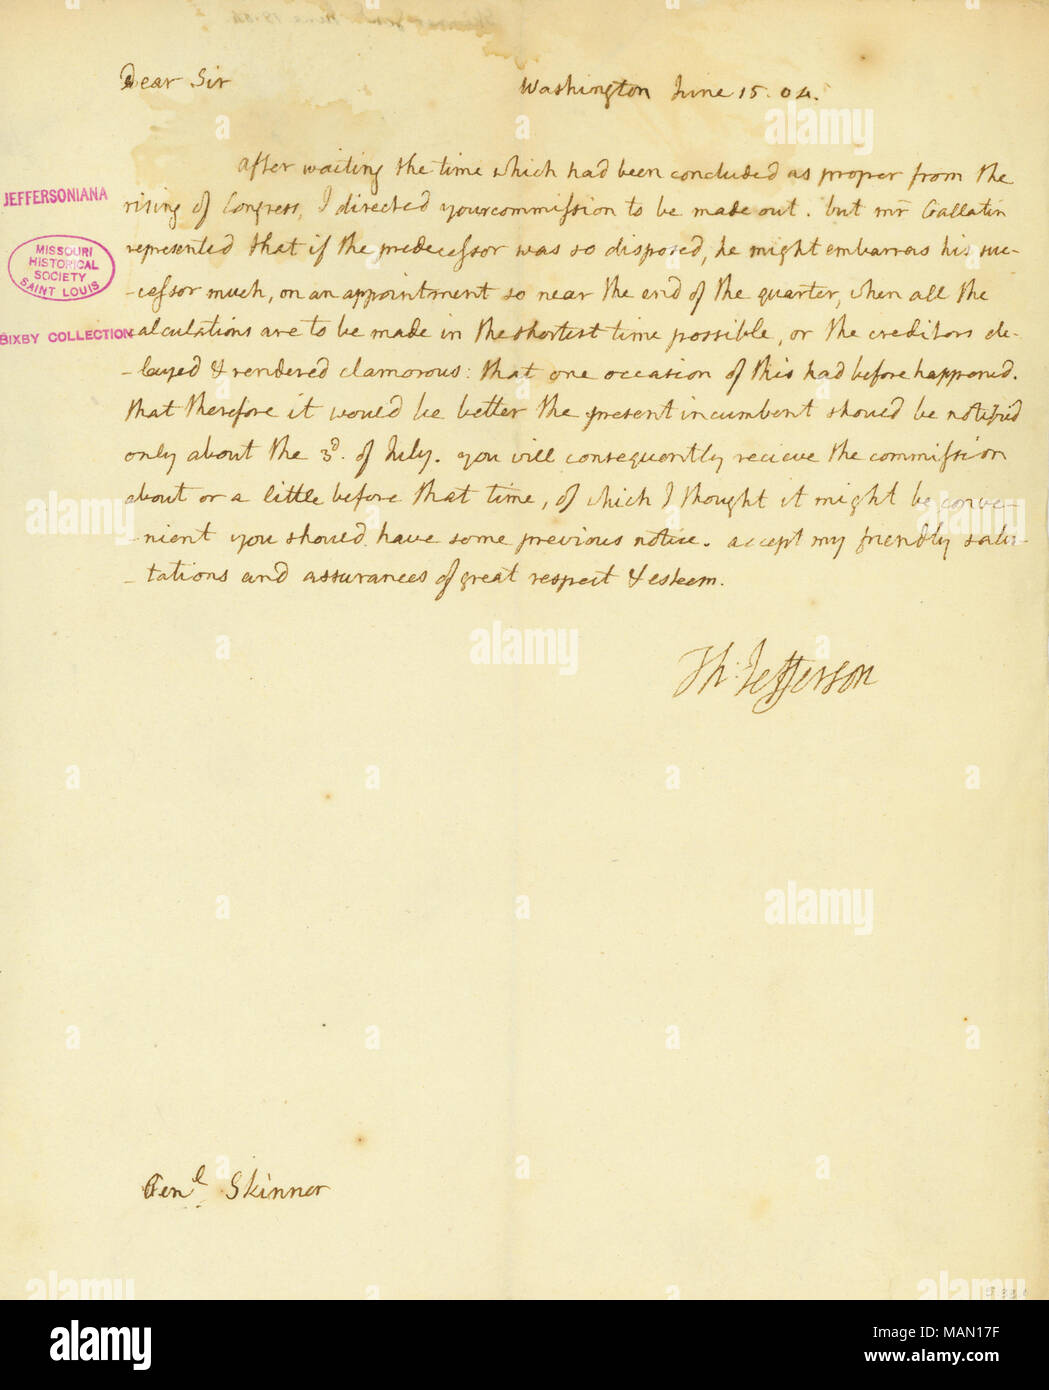 Dear Sir
Washington June 15. 04.
After waiting the time which had been concluded as proper from the
rising of Congress, I directed your commission to be made out. but mr Gallatin
represented that if the predecessor was so disposed, he might embarrass his suc-
-cessor much, on an appointment so near the end of the quarter, when all the
calculations are to be made in the shortest time possible, or the creditors de-
-layed & rendered clamorous: that one occasion of this had before happened.
that therefore it would be better the present incumbent should be notified
only about the 3d. of July. you will consequently recieve the commission
about or a little before that time, of which I thought it might be conve-
-nient you should have some previous notice. accept my friendly salu-
-tations and assurances of great respect & esteem.
Th: Jefferson
Genl. Skinner
JEFFERSONIANA
MISSOURI
HISTORICAL
SOCIETY
SAINT LOUIS
BIXBY COLLECTION
alamy
alamy
Image ID: MAN17F
www.alamy.com